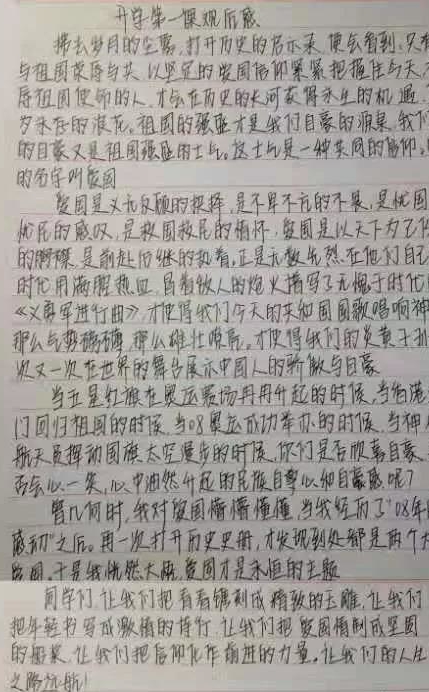 开学第一课观后感
拂去岁月的尘雾,打开历史的启示录,便会看到,只有
与祖国荣辱与共,以坚定的爱国信仰紧紧把握住与天
辱祖国使命的人,才会在历史的长河获得永生的机遇,
为永存的浪花。祖国的强盛才是我们自豪的源泉,我们
的自豪又是祖国强盛的士气。这士气是一种共同的信仰,
的名字叫爱国
爱国是义无反顾的抉择,是不卑不亢的不畏,是忧国
忧民的感叹,是救国救民的情怀,爱国是以天下为己任
的胸襟,是前赴后继的执着,正是无数先烈,在他们自己
时代用满腔热血,冒着敌人的炮火谱写了无愧于时代
《义勇军进行曲》,才使得我们今天的共和国国歌唱响神
那么气势磅礴,那么雄壮嘹亮。才使得我们的炎黄子孙
次又一次在世界的舞台展示中国人的骄傲与自豪
当五星红旗在奥运赛场冉冉升起的时候,当香港
门回归祖国的时候,当08奥运成功举办的时候,当神
航天员挥动国旗太空漫步的时候,你们是否欣喜自豪
否会心一笑,心中油然升起的民族自尊心和自豪感呢?
曾几何时,我对爱国懵懵懂懂,当我经历了“08年
感动”之后。再一次打开历史史册,才发现到处都是两个大
爱国,于是我恍然大悟,爱国才是永恒的主题
同学们,让我们把青春镌刻成精致的玉雕,让我们
把年轻书写成激情的诗行,让我们把爱国情制成坚固
的船桨,让我们把信仰化作前进的力量,让我们的人生
之路远航!